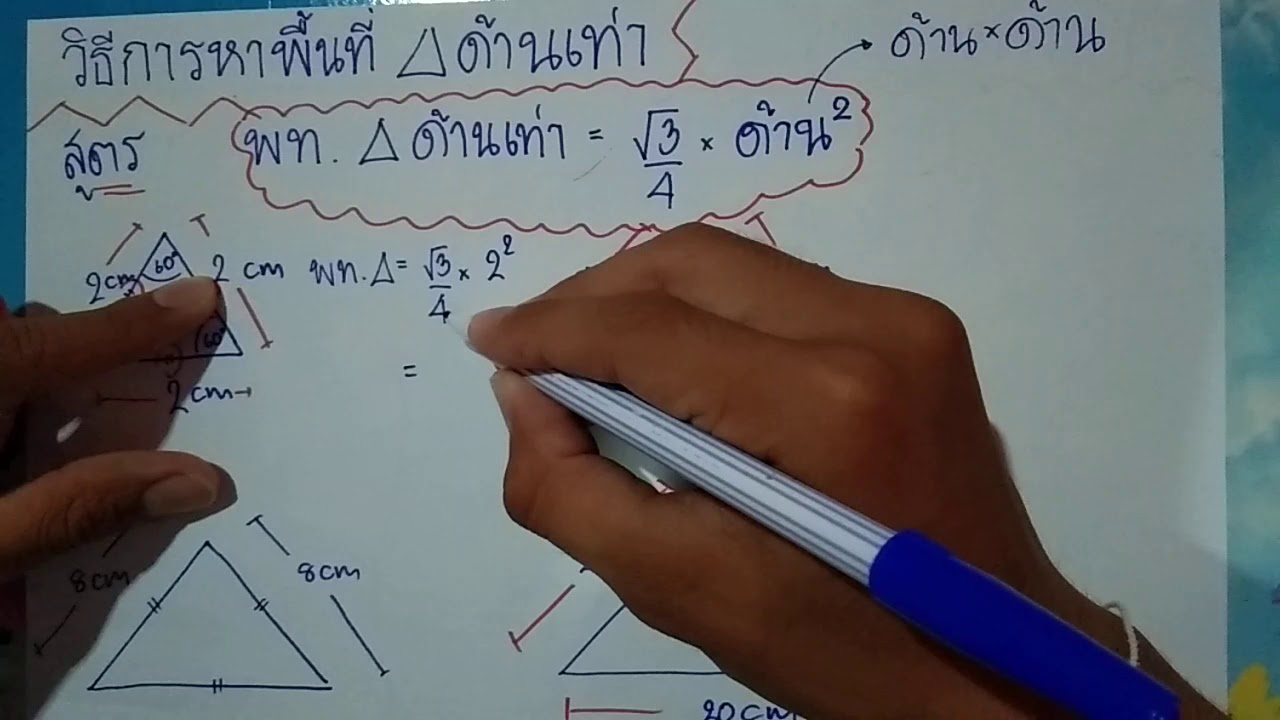 วิธีการหาพื้นที่ △ ด้านเท่า
ด้าน × ด้าน
สูตร พท. △ ด้านเท่า = √3/4 × ด้าน²
60°
2cm
2 cm
พท. △ = √3/4 × 2²
60°
=
2cm
8cm
8cm
20cm